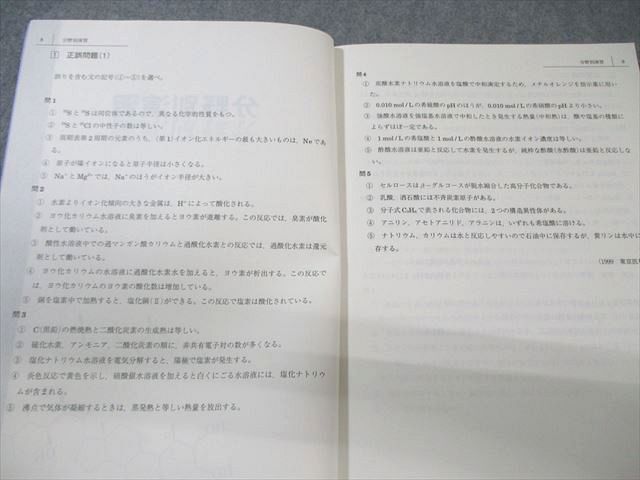 8 分野別演習
1 正誤問題(1)
誤りを含む文の記号(①~⑤)を選べ。
問1
① ³²Sと³⁴Sは同位体であるので,異なる化学的性質をもつ。
の中性子の数は等しい。
③ 周期表第2周期の元素のうち,(第1)イオン化エネルギーの最も大きいものは,Neであ
る。
④ 原子が陽イオンになると原子半径は小さくなる。
⑤ Na⁺とMg²⁺では,Na⁺のほうがイオン半径が大きい。
問2
① 水素よりイオン化傾向の大きな金属は,H⁺によって酸化される。
② ヨウ化カリウムの水溶液に臭素を加えるとヨウ素が遊離する。この反応では,臭素が酸化
剤として働いている。
③ 酸性水溶液中での過マンガン酸カリウムと過酸化水素との反応では,過酸化水素は還元
剤として働いている。
④ ヨウ化カリウムの水溶液に過酸化水素水を加えると,ヨウ素が析出する。この反応で
は,ヨウ化カリウムのヨウ素の酸化数は増加している。
⑤ 銅を塩素中で加熱すると,塩化銅(Ⅱ)ができる。この反応で塩素は酸化されている。
問3
① C(黒鉛)の燃焼熱と二酸化炭素の生成熱は等しい。
② 硫化水素,アンモニア,二酸化炭素の順に,非共有電子対の数が多くなる。
③ 塩化ナトリウム水溶液を電気分解すると,陽極で塩素が発生する。
④ 炎色反応で黄色を示し,硝酸銀水溶液を加えると白くにごる水溶液には,塩化ナトリウ
ムが含まれる。
⑤ 沸点で気体が凝縮するときは,蒸発熱と等しい熱量を放出する。
分野別演習 9
問4
① 炭酸水素ナトリウム水溶液を塩酸で中和滴定するため,メチルオレンジを指示薬に用い
た。
② 0.010 mol/Lの希硫酸のpHのほうが,0.010 mol/Lの希硝酸のpHより小さい。
③ 強酸水溶液を強塩基水溶液で中和したとき発生する熱量(中和熱)は,酸や塩基の種類に
よらずほぼ一定である。
④ 1 mol/Lの塩酸と1 mol/Lの酢酸水溶液の水素イオン濃度は等しい。
⑤ 酢酸水溶液は亜鉛と反応して水素を発生するが,純粋な酢酸(氷酢酸)は亜鉛と反応しな
い。
問5
① セルロースはβ-グルコースが脱水縮合した高分子化合物である。
② 乳酸,酒石酸には不斉炭素原子がある。
で表される化合物には,2つの構造異性体がある。
④ アニリン,アセトアニリド,アラニンは,いずれも希塩酸に溶ける。
⑤ ナトリウム,カリウムは水と反応しやすいので石油中に保存するが,黄リンは水中に
存する。
(1999 東京医